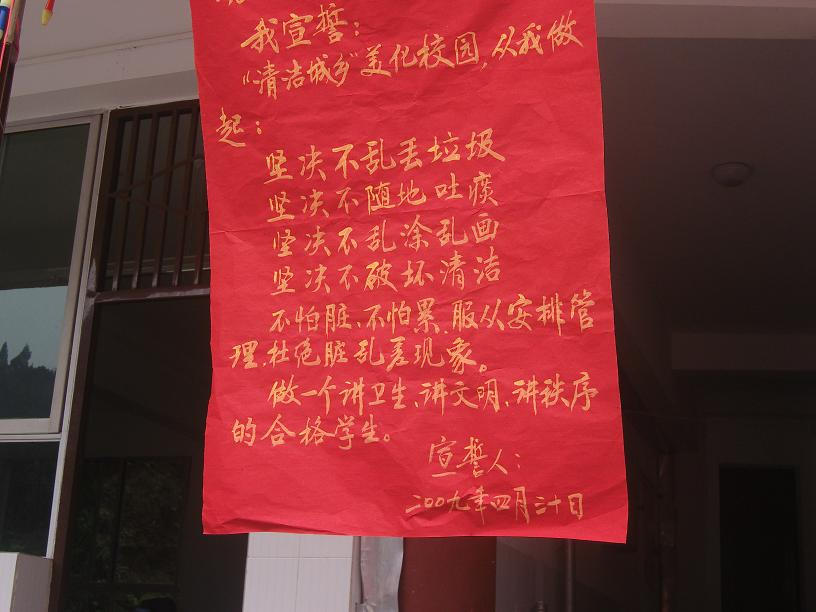 我宣誓：
“清洁城乡”美化校园，从我做
起：
坚决不乱丢垃圾
坚决不随地吐痰
坚决不乱涂乱画
坚决不破坏清洁
不怕脏、不怕累、服从安排管
理，杜绝脏乱差现象。
做一个讲卫生、讲文明、讲秩序
的合格学生。
宣誓人：
二00九年四月二十日